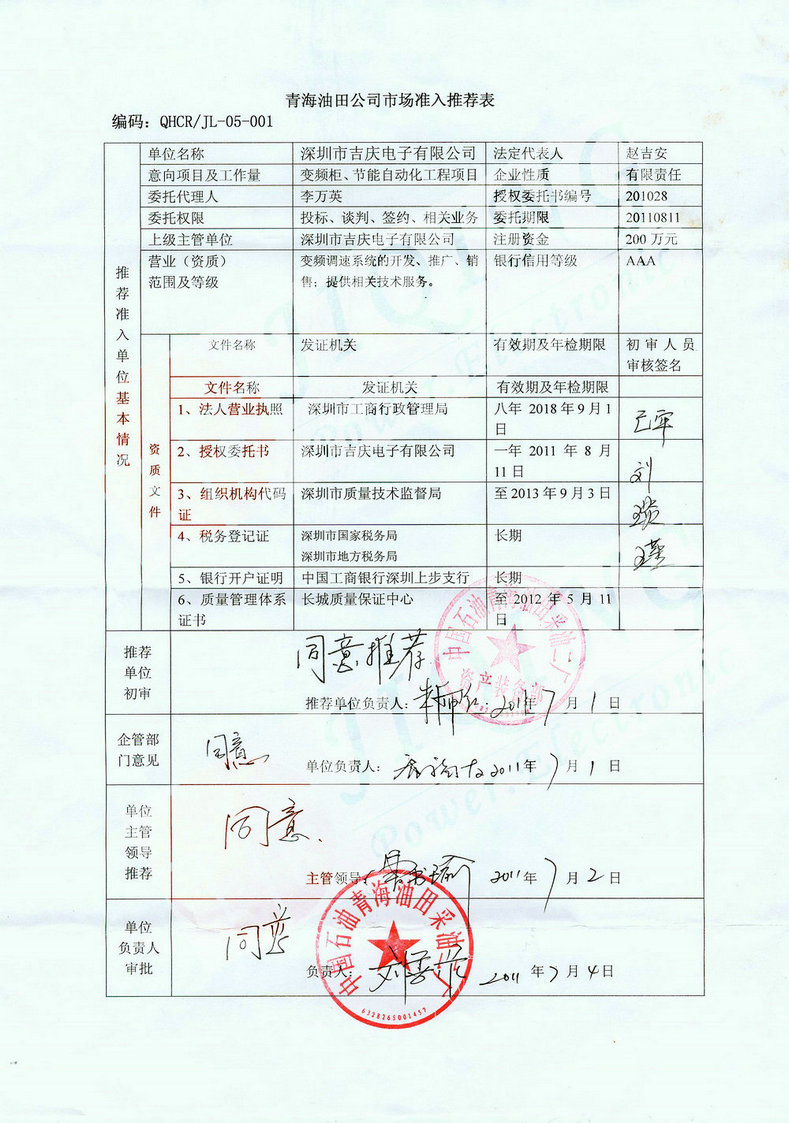 青海油田公司市场准入推荐表
编码：QHCR/JL-05-001
推荐准入单位基本情况
单位名称 深圳市吉庆电子有限公司 法定代表人 赵吉安
意向项目及工作量 变频柜、节能自动化工程项目 企业性质 有限责任
委托代理人 李万英 授权委托书编号 201028
委托权限 投标、谈判、签约、相关业务 委托期限 20110811
上级主管单位 深圳市吉庆电子有限公司 注册资金 200 万元
营业（资质） 变频调速系统的开发、推广、销 银行信用等级 AAA
范围及等级 售；提供相关技术服务。
资质文件
文件名称 发证机关 有效期及年检期限 初审人员
审核签名
文件名称 发证机关 有效期及年检期限
1、法人营业执照 深圳市工商行政管理局 八年 2018 年 9 月 1
日
2、授权委托书 深圳市吉庆电子有限公司 一年 2011 年 8 月
11 日
刘
3、组织机构代码 深圳市质量技术监督局 至 2013 年 9 月 3 日
证
4、税务登记证 深圳市国家税务局 长期
深圳市地方税务局
5、银行开户证明 中国工商银行深圳上步支行 长期
6、质量管理体系 长城质量保证中心 至 2012 年 5 月 11
证书 日
推荐
单位
初审
同意推荐
推荐单位负责人： 2011年 7 月 1 日
中国石油青海油田采油二厂
资立装备部
企管部
门意见
同意
单位负责人： 2011年 7 月 1 日
单位
主管
领导
推荐
同意.
主管领导： 2011年 7 月 2 日
单位
负责人
审批
同意
负责人： 2011 年 7 月 4 日
中国石油青海油田采油二厂
6328265001457
JIQING
Power.Electronic
JIQING
Power.Electronic